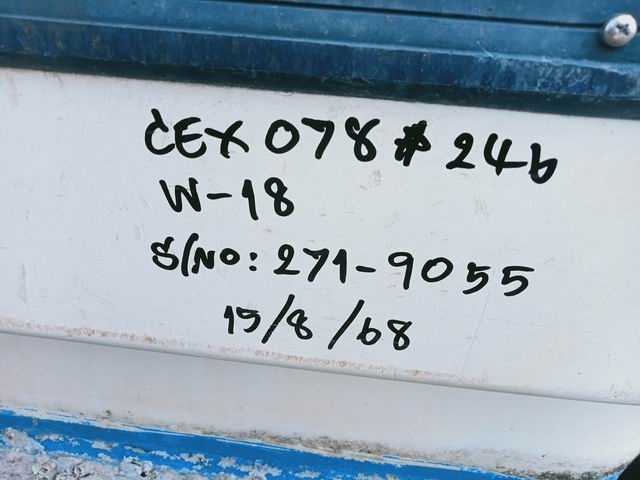 CEX 078 # 246
W-18
S/NO: 271-9055
15/8/68